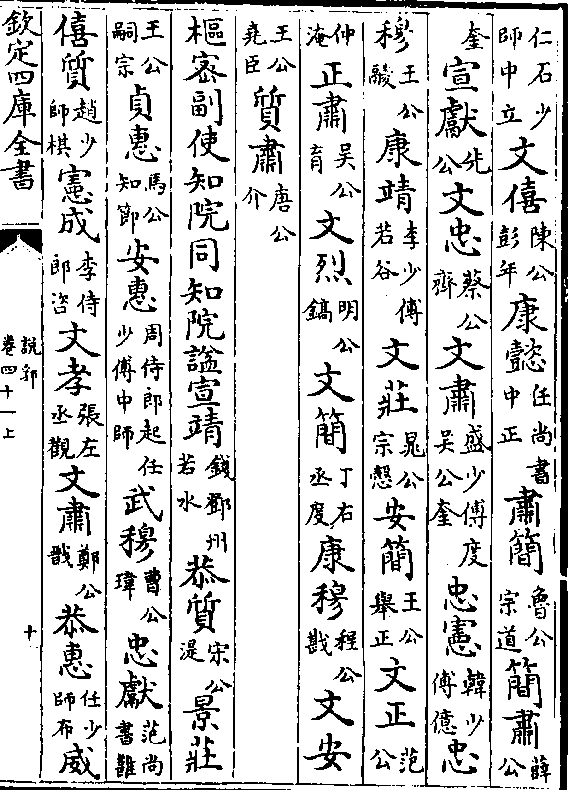 仁石少師中立文僖陳公彭年康懿任尚書中正肅簡魯公宗道簡肅薛公
奎宣獻公文忠蔡公齊文肅盛少傅度吳公奎忠憲韓少傅億忠
穆王公鬷康靖李少傅若谷文莊晁公宗慤安簡王公舉正文正范公
仲淹正肅吳公育文烈明公鎬文簡丁右丞度康穆程公戡文安
王公堯臣質肅唐公介
樞密副使知院同知院諡宣靖錢鄧州若水恭質宋公湜景莊
王公嗣宗貞惠馬公知節安惠周侍郎起任少傅中師武穆曹公瑋忠獻范尚書雝
僖質趙少師棋憲成李侍郎咨文孝張左丞觀文肅鄭公戩恭惠任少師布威
欽定四庫全書
說郛
卷四十一上
十